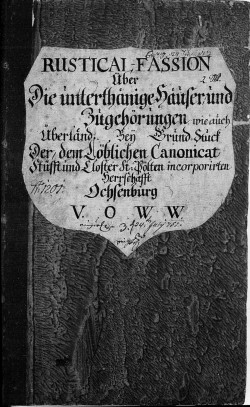 RUSTICAL-FASSION
Über
Die unterthänige Häußer und
Zugehörungen wie auch
Überländ: Bey Gründ Stuck
Der, dem Löblichen Canonicat
Stüfft und Closter St. Pölten incorporirten
Herrschafft
Ochsenburg
V. O. W. W.